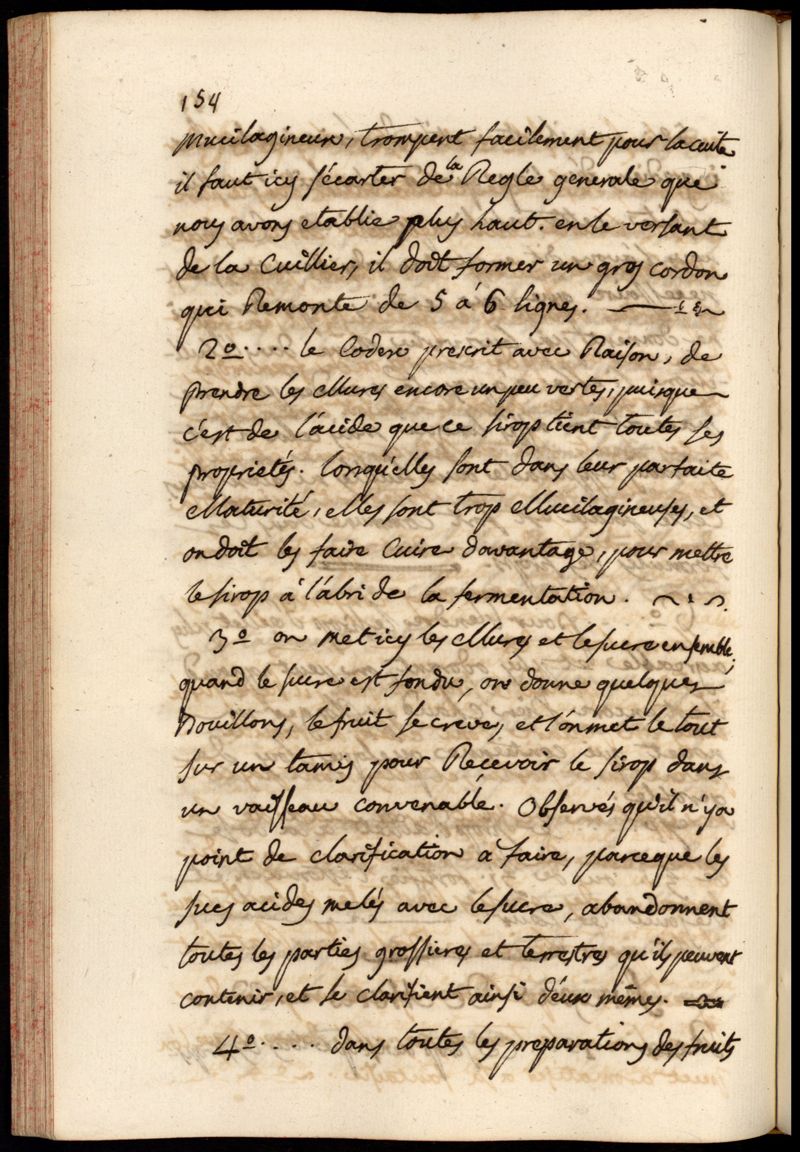 154
Mucilagineux, trompent facilement pour la cuite
il faut icy s'écarter de la Regle generale que
nous avons etablie plus haut. en le versant
de la Cuillier, il doit former un gros cordon
qui Remonte de 5 á 6 lignes.
2º.... le Codex prescrit avec Raison, de
prendre les Mures encore un peu vertes, puisque
c'est de l'acide que ce sirop tient toutes ses
proprietés. lorsqu'elles sont dans leur parfaite
Maturité, elles sont trop Mucilagineuses, et
on doit les faire Cuire davantage, pour mettre
le sirop á l'abri de la fermentation.
3º on met icy les Mures et le sucre ensemble;
quand le sucre est fondu, on donne quelques
Bouillons, le fruit se creve, et l'on met le tout
sur un tamis pour Recevoir le sirop dans
un vaisseau convenable. Observés qu'il n'y a
point de clarification a faire, parceque les
sucs acides melés avec le sucre, abandonnent
toutes les parties grossieres et terrestres qu'ils peuvent
contenir, et se clarifient ainsi d'eux mêmes.
4º.... dans toutes les preparations des fruits